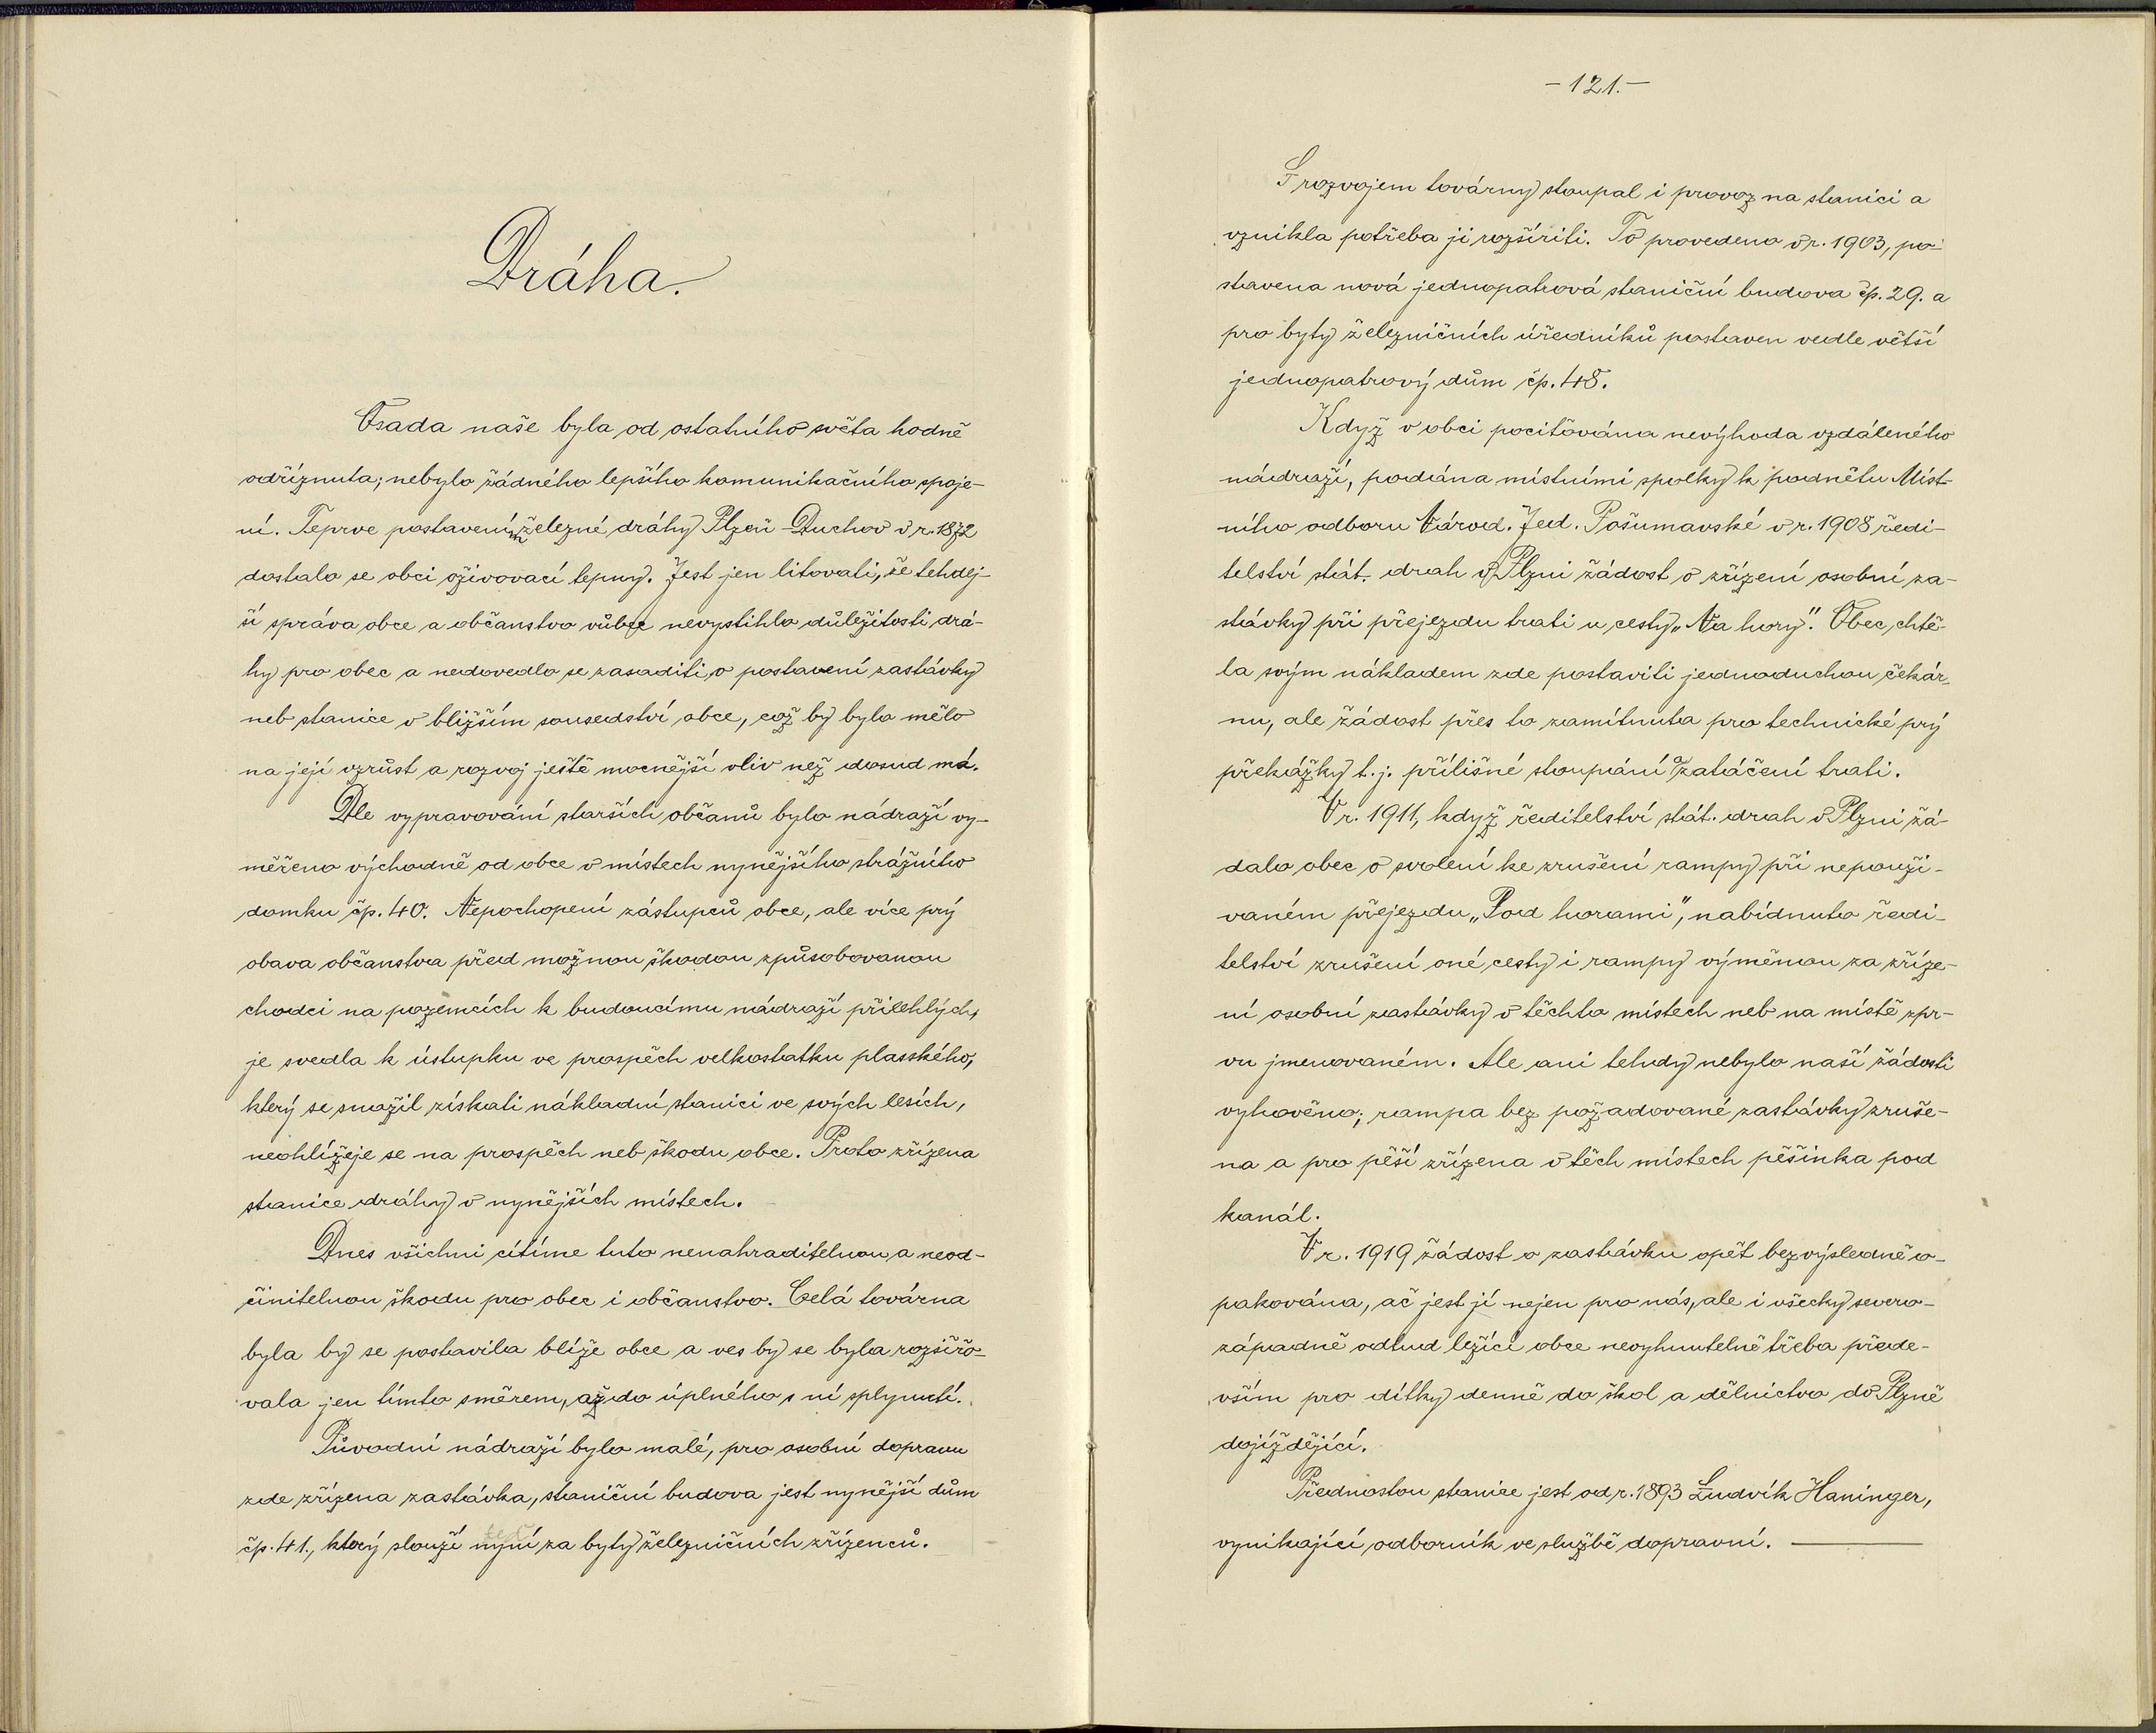 Dráha.
Osada naše byla od ostatního světa hodně
odříznuta; nebylo žádného lepšího komunikačního spoje-
ní. Teprve postavením železné dráhy Plzeň - Duchov v r. 1872
dostalo se obci oživovací tepny. Jest jen litovati, že tehdej-
ší správa obce a občanstvo vůbec nevystihlo důležitosti drá-
hy pro obec a nedovedlo se zasaditi o postavení zastávky
neb stanice v bližším sousedství obce, což by bylo mělo
na její vzrůst a rozvoj ještě mocnější vliv než dosud má.
Dle vypravování starších občanů bylo nádraží vy-
měřeno východně od obce v místech nynějšího strážního
domku čp. 40. Nepochopení zástupců obce, ale více prý
obava občanstva před možnou škodou způsobovanou
chodci na pozemcích k budoucímu nádraží přilehlých,
je svedla k ústupku ve prospěch velkostatku plasského,
který se snažil získati nákladní stanici ve svých lesích,
neohlížeje se na prospěch neb škodu obce. Proto zřízena
stanice dráhy v nynějších místech.
Dnes všichni cítíme tuto nenahraditelnou a neod-
činitelnou škodu pro obec i občanstvo. Celá továrna
byla by se postavila blíže obce a ves by se byla rozšiřo-
vala jen tímto směrem, až do úplného s ní splynutí.
Původní nádraží bylo malé, pro osobní dopravu
zde zřízena zastávka, staniční budova jest nynější dům
čp. 41., který slouží nyní teď za byty železničních zřízenců.
- 121. -
S rozvojem továrny stoupal i provoz na stanici a
vznikla potřeba ji rozšířiti. To provedeno v r. 1903, po-
stavena nová jednopatrová staniční budova čp. 29. a
pro byty železničních úředníků postaven vedle větší
jednopatrový dům čp. 48.
Když v obci pociťována nevýhoda vzdáleného
nádraží, podána místními spolky k podnětu Míst-
ního odboru Národ. Jed. Pošumavské v r. 1908 ředi-
telství stát. drah v Plzni žádost o zřízení osobní za-
stávky při přejezdu trati u cesty „Na hory". Obec chtě-
la svým nákladem zde postaviti jednoduchou čekár-
nu, ale žádost přes to zamítnuta pro technické prý
překážky t. j. přílišné stoupání a zatáčení trati.
V r. 1911, když ředitelství stát. drah v Plzni žá-
dalo obec o svolení ke zrušení rampy při nepouží-
vaném přejezdu „Pod horami", nabídnuto ředi-
telství zrušení oné cesty i rampy výměnou za zříze-
ní osobní zastávky v těchto místech neb na místě zpr-
vu jmenovaném. Ale ani tehdy nebylo naší žádosti
vyhověno; rampa bez požadované zastávky zruše-
na a pro pěší zřízena v těch místech pěšinka pod
kanál.
V r. 1919 žádost o zastávku opět bezvýsledně o-
pakována, ač jest jí nejen pro nás, ale i všecky severo-
západně odtud ležící obce nevyhnutelně třeba přede-
vším pro dítky denně do škol a dělnictvo do Plzně
dojíždějící.
Přednostou stanice jest od r. 1893 Ludvík Haninger,
vynikající odborník ve službě dopravní. —